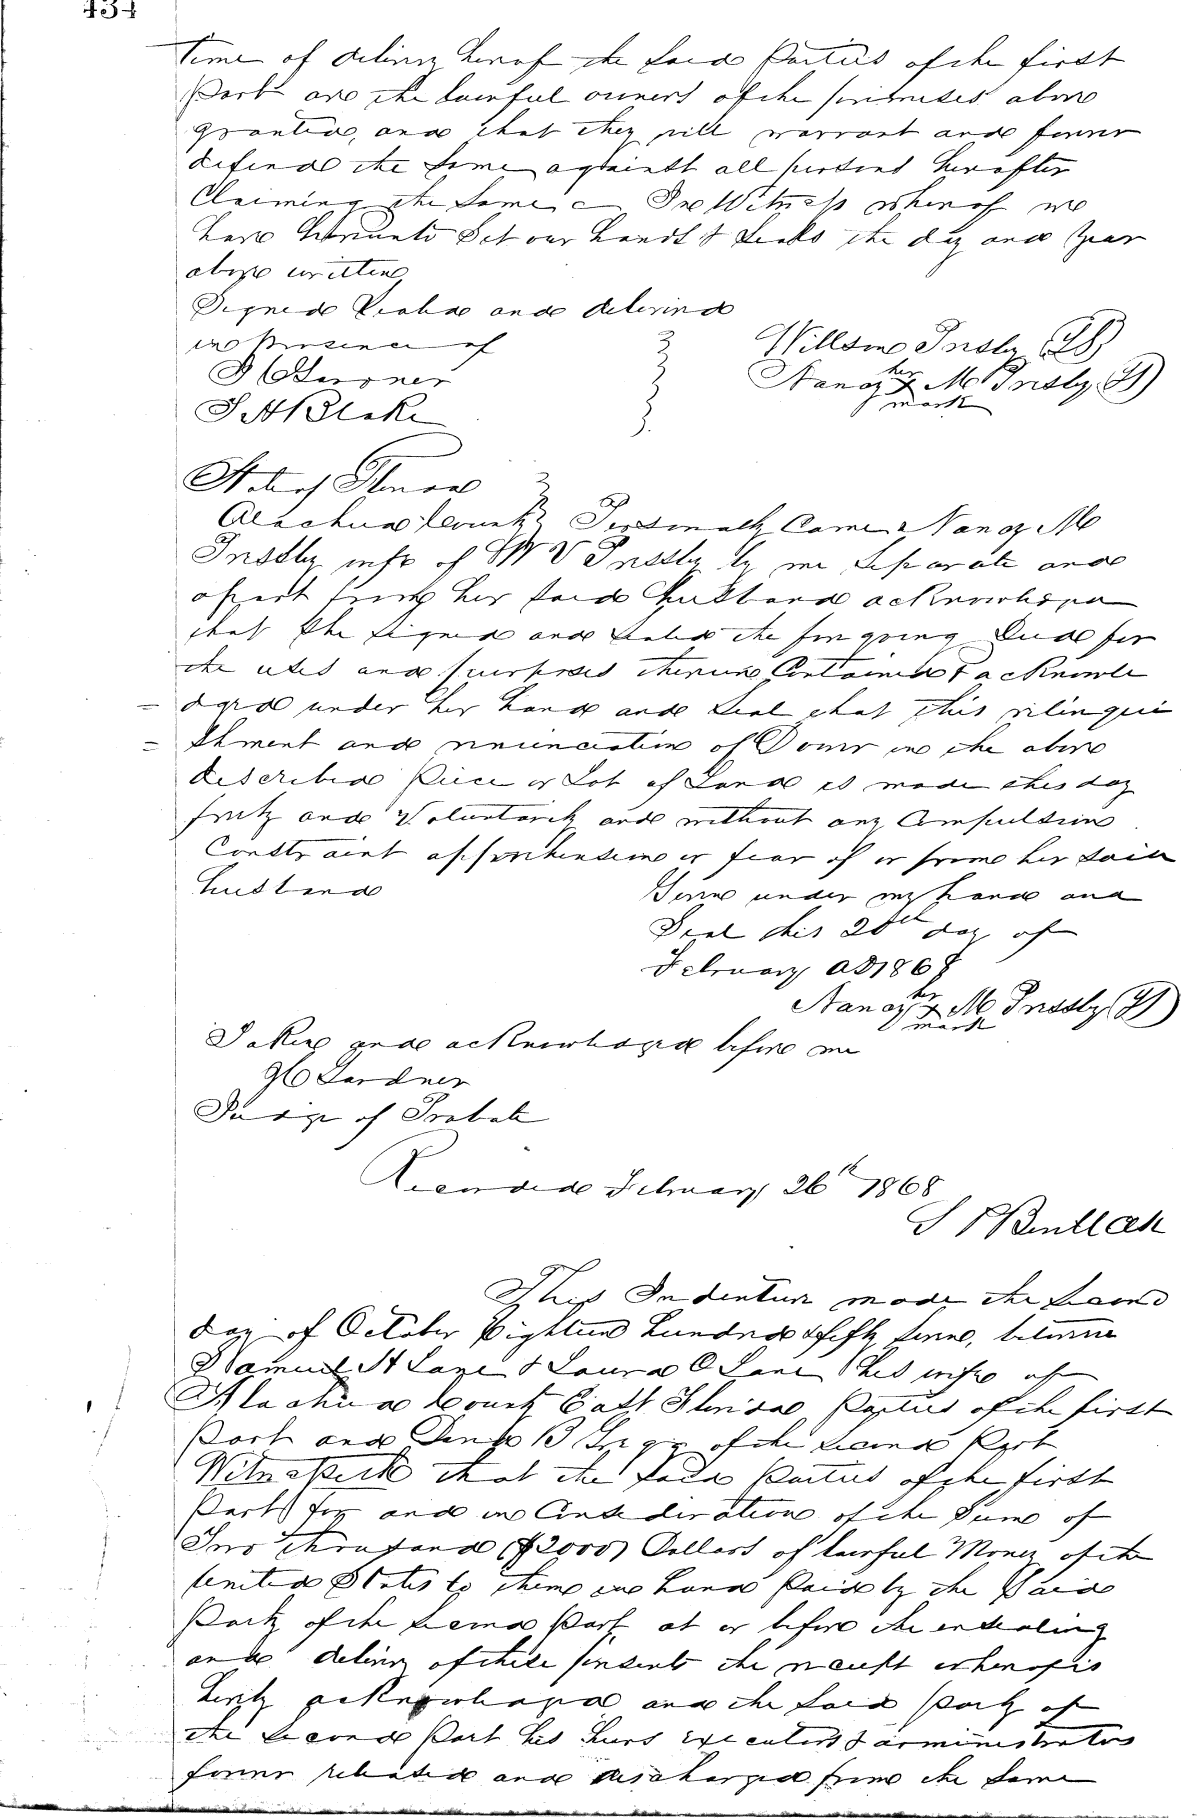 434
time of delivery hereof the said Parties of the first
Part are the lawful owners of the premises above
granted, and that they will warrant and forever
defend the same against all persons hereafter
Claiming the same In Witness whereof we
have hereunto Set our hands & Seals the day and Year
above written
Signed Sealed and delivered
in presence of
H Gardner
S A Blake
Nancy her x mark M
State of Florida
Alachua County Personally Came Nancy M
wife of W V by me Separate and
apart from her said husband acknowledged
that She signed and sealed the foregoing Deed for
the uses and purposes therein Contained & acknowle
= dged under her hand and seal that this relinqui
= shment and renunciation of Dower in the above
described Piece or Lot of Land is made this day
freely and Voluntarily and without any Compulsion
Constraint apprehension or fear of or from her said
husband
Given under my hand and
Seal this 20th day of
February AD 1868
Nancy her x mark M
Taken and acknowledged before me
H Gardner
Judge of Probate
Recorded February 26th 1868
This Indenture made the Second
day of October Eighteen hundred & fifty seven, between
Samuel H Lane & Laura C Lane his wife of
Alachua County East Florida Parties of the first
Part and B Gregg of the Second Part
Witnesseth that the said Parties of the first
Part for and in Consideration of the Sum of
Two thousand ($2000) Dollars of lawful Money of the
United States to them in hand Paid by the Said
Party of the Second Part at or before the ensealing
and delivery of these presents the receipt whereof is
hereby acknowledged and the Said party of
the second Part his heirs executors & administrators
forever released and discharged from the same